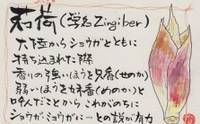 茗荷(学名Zingiber)
大陸からショウガとともに
持ち込まれた際
香りの強いほうを兄香(せのか)
弱いほうを妹香(めのか)と
呼んだことからこれがのちに
ショウガ・ミョウガに…との説が有力